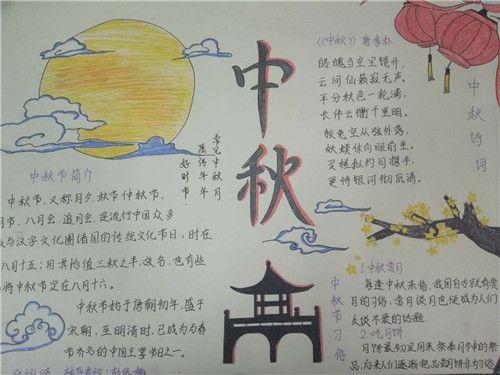 中秋
中秋节简介
中秋节，又称月夕，秋节仲秋节、
月节、八月会，追月会，是流行中国众多
族与汉字文化圈诸国的传统文化节日，时在
八月十五；因其恰值三秋之半，故名，也有些
将中秋节定在八月十六。
中秋节始于唐朝初年，盛于
宋朝，至明清时，已成为与春
节齐名的中国主要节日之一。
《中秋》
皓魄当空宝镜升，
云间仙籁寂无声。
平分秋色一轮满，
长伴云衢千里明。
狡兔空从弦外落，
妖蟆休向眼前生。
灵槎拟约同携手，
更待银河彻底清。
中秋诗词
中秋节习俗
1.中秋赏月
每逢中秋来临，我国自古就有赏
月的习俗，赏月谈月也便成为人们
久谈不衰的话题。
2.吃月饼
月饼最初是用来祭奉月神的祭
品，后来人们逐渐把品尝月饼作为家